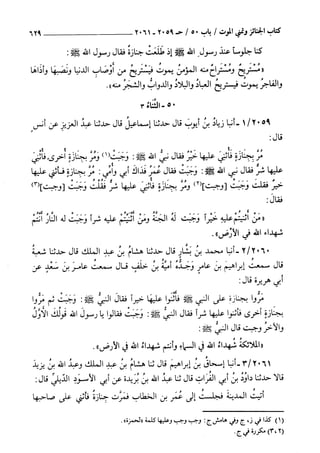 كتاب الجنائز وتمني الموت / باب ٥٠ / حـ ٢٠٥٩ - ٢٠٦١
٦٢٩
كنا جلوساً عند رسول الله ﷺ إذ طلعت جنازة فقال رسول الله ﷺ:
«مُسْتَرِيحٌ ومُسْتَراحٌ منه المؤمنُ يموتُ فيستريحُ من أَوْصَابِ الدنيا ونَصَبِها وأذاها
والفاجرُ يموتُ فيستريحُ العبادُ والبلادُ والدوابُّ والشجرُ منه».
٥٠ - الثناءُ ٣
١/٢٠٥٩ - أنبا زيادُ بنُ أيوبَ قال حدثنا إسماعيلُ قال حدثنا عبدُ العزيزِ عن أنسٍ
قال:
مُرَّ بجنازةٍ فأُثْنِيَ عليها خيرٌ فقال نبي الله ﷺ: وَجَبَتْ(١) ومُرَّ بجنازةٍ أُخرى فأُثْنِيَ
عليها شرٌّ فقال نبي الله ﷺ: وَجَبَتْ فقال عُمَرُ فداكَ أبي وأُمي: مُرَّ بجنازةٍ فأثني عليها
خيرٌ فقلتَ وَجَبَتْ [وجبت](٢) ومُرَّ بجنازةٍ فأُثْنِيَ عليها شرٌّ فقُلْتَ وَجَبَتْ [وجبت](٣)
فقال:
«مَنْ أثنيتُم عليهِ خَيْراً وَجَبَتْ لهُ الجنةُ ومَنْ أثنيْتُم عليه شراً وَجَبَتْ له النارُ أنتُمْ
شهداء الله في الأرْضِ».
٢/٢٠٦٠ - أنبا محمد بنُ بَشَّارٍ قال حدثنا هشامُ بنُ عبدِ الملك قال حدثنا شعبةُ
قال سمعتُ إبراهيمَ بنَ عامرٍ وَجَدُّه أُميةُ بنُ خَلَفٍ قال سمعتُ عامرَ بنَ سعدٍ عن
أبي هريرة قال:
مَرّوا بجنازة على النبي ﷺ فأَثْنوا عليها خيراً فقال النبيُّ ﷺ: وَجَبَتْ ثم مروا
بجنازةٍ أخرى فأثنوا عليها شراً فقال النبيُّ ﷺ: وجبتْ فقالوا يا رسولَ الله قولُكَ الأوَّلُ
والآخرُ وجبت قال النبيُّ ﷺ:
«الملائكةُ شُهداءُ الله في السماءِ وأنتم شهداءُ الله في الأرضِ».
٣/٢٠٦١ - أنبا إسحاقُ بنُ إبراهيمَ قال ثنا هشامُ بنُ عبدِ الملك وعبدُ الله بنُ يزيدَ
قالا حدثنا داودُ بنُ أبي الفُراتِ قال ثنا عبدُ الله بنُ بُريدةَ عن أبي الأسودِ الدِّيليِّ قال:
أتيتُ المدينةَ فجلستُ إلى عُمَرَ بنِ الخطابِ فَمَرَّت جنازةٌ فأُثنيَ على صاحبها
(١) كذا في ز، ج وفي هامش ج: وجب وجب وعليها كلمة «لحمزة».
(٢، ٣) مكررة في ج.